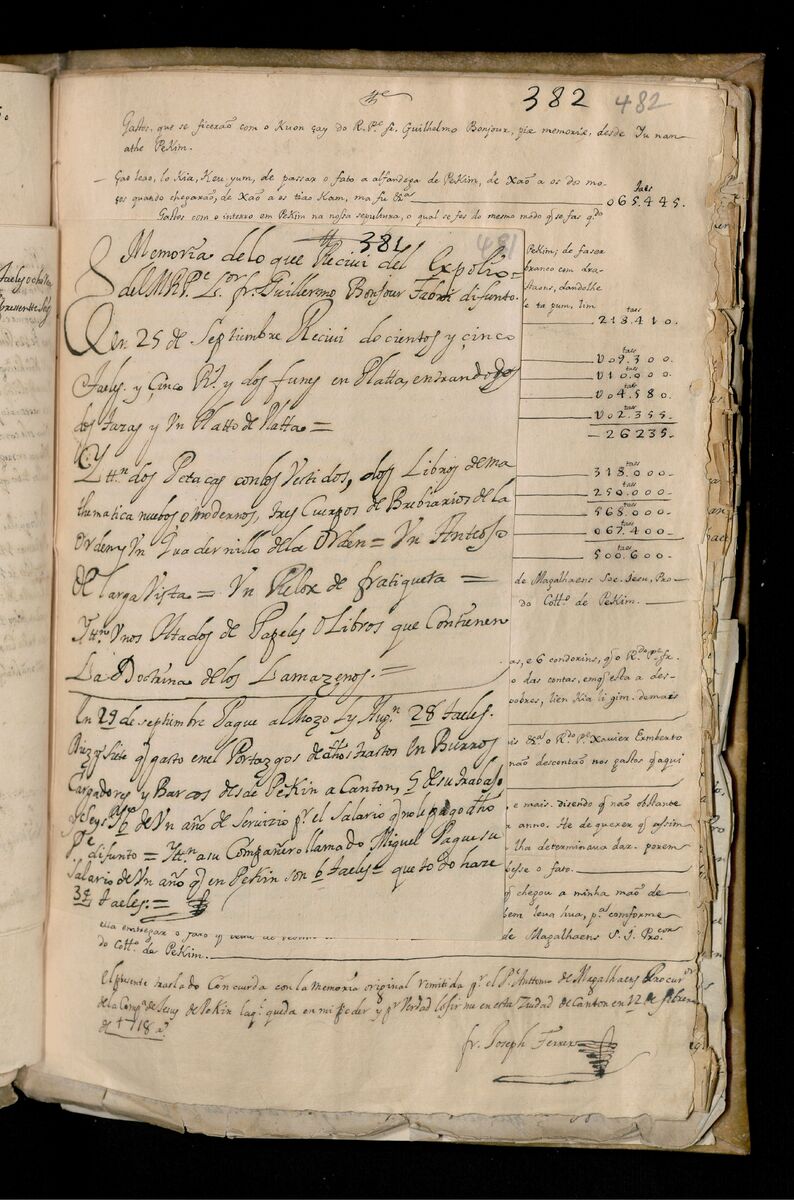 382 482
Gastos, que se ficerão com o Kuon çay do R. Pe. fr. Guilhelmo Bonjour, piæ memoriæ, desde Yu nam
athe PeKim.
Çao leao, lo Kia, Keu yum, de passar o fato a alfandega de PeKim, de Xaó a os dos mo-
taes
ços quando chegarão, de Xaó a os tiao Kam, ma fu &as 065.445.
Gastos com o interro em PeKim na nossa sepultura, o qual se fes do mesmo modo q se fas qdo
381 481
Memoria de lo que Recivi del Expolio
del M R Pe Lor fr. Guillermo Bonjour Fabri difunto.
En 25 de Septiembre Recivi docientos y çinco
Taeles y Çinco Rs. y dos funes en Platta, entrando
dos Tazas y Vn Platto de Platta =
Ittn dos Petacas con los Vestidos, dos Libros de ma
thematica nuebos o modernos, tres Cuerpos de Brebiarios de la
Orden y Vn Quadernillo de la Orden = Vn Anteojo
de larga Vista = Vn Relox de fratiquera =
Ittn Vnos Atados de Papeles o Libros que Contienen
La Doctrina de los Lamazenos. =
En 29 de septiembre Pague al Mozo Ly Augn 28 taeles.
Diez y siete q gasto en el Portazgos de dhos trastos en Burros
Cargadores y Barcos desde PeKin a Canton, 5 de su trabajo
y seys 6 de Vn año de Servizio pr. el salario q no le pago dho
Pe difunto = Ittn a su Compañero llamado Miguel Pague su
salario de Vn año q en PeKin son 6 taeles que todo haze
34 taeles. =
PeKim; de faser
branco com dra-
, dandolhe
e ta pum, lim
taes
218.410.
taes
009.300.
taes
010.000.
taes
004.580.
taes
002.355.
26235.
taes
318.000.
taes
250.000.
taes
568.000.
taes
067.400.
taes
500.600.
de Magalhaens Soc. Jesu, Pro-
do Collo. de PeKim.
as, e 6 condorins, q o Rdo Pe fr.
o das contas, em q esta a des-
pobres, lien Kia li gim. demais
o Rdo Pe Xavier Ermberto
não descontão nos gastos q aqui
, e mais. disendo q não obstante
anno. He de querer q assim
lha determinava dar. porem
esse o fato.
q chegou a minha mão de
bem leva hua, pa conforme
de Magalhaens S. J. Procor
do Collo. de PeKim.
El presente traslado Concuerda con la memoria original remitida pr el Pe Antonio de Magalhaens Procuror
de la Compa de Jesus de PeKin la ql queda en mi poder y pr Verdad lo firme en esta Ziudad de Canton en 12 de febrero
de 1718 as
fr. Joseph Ferrer